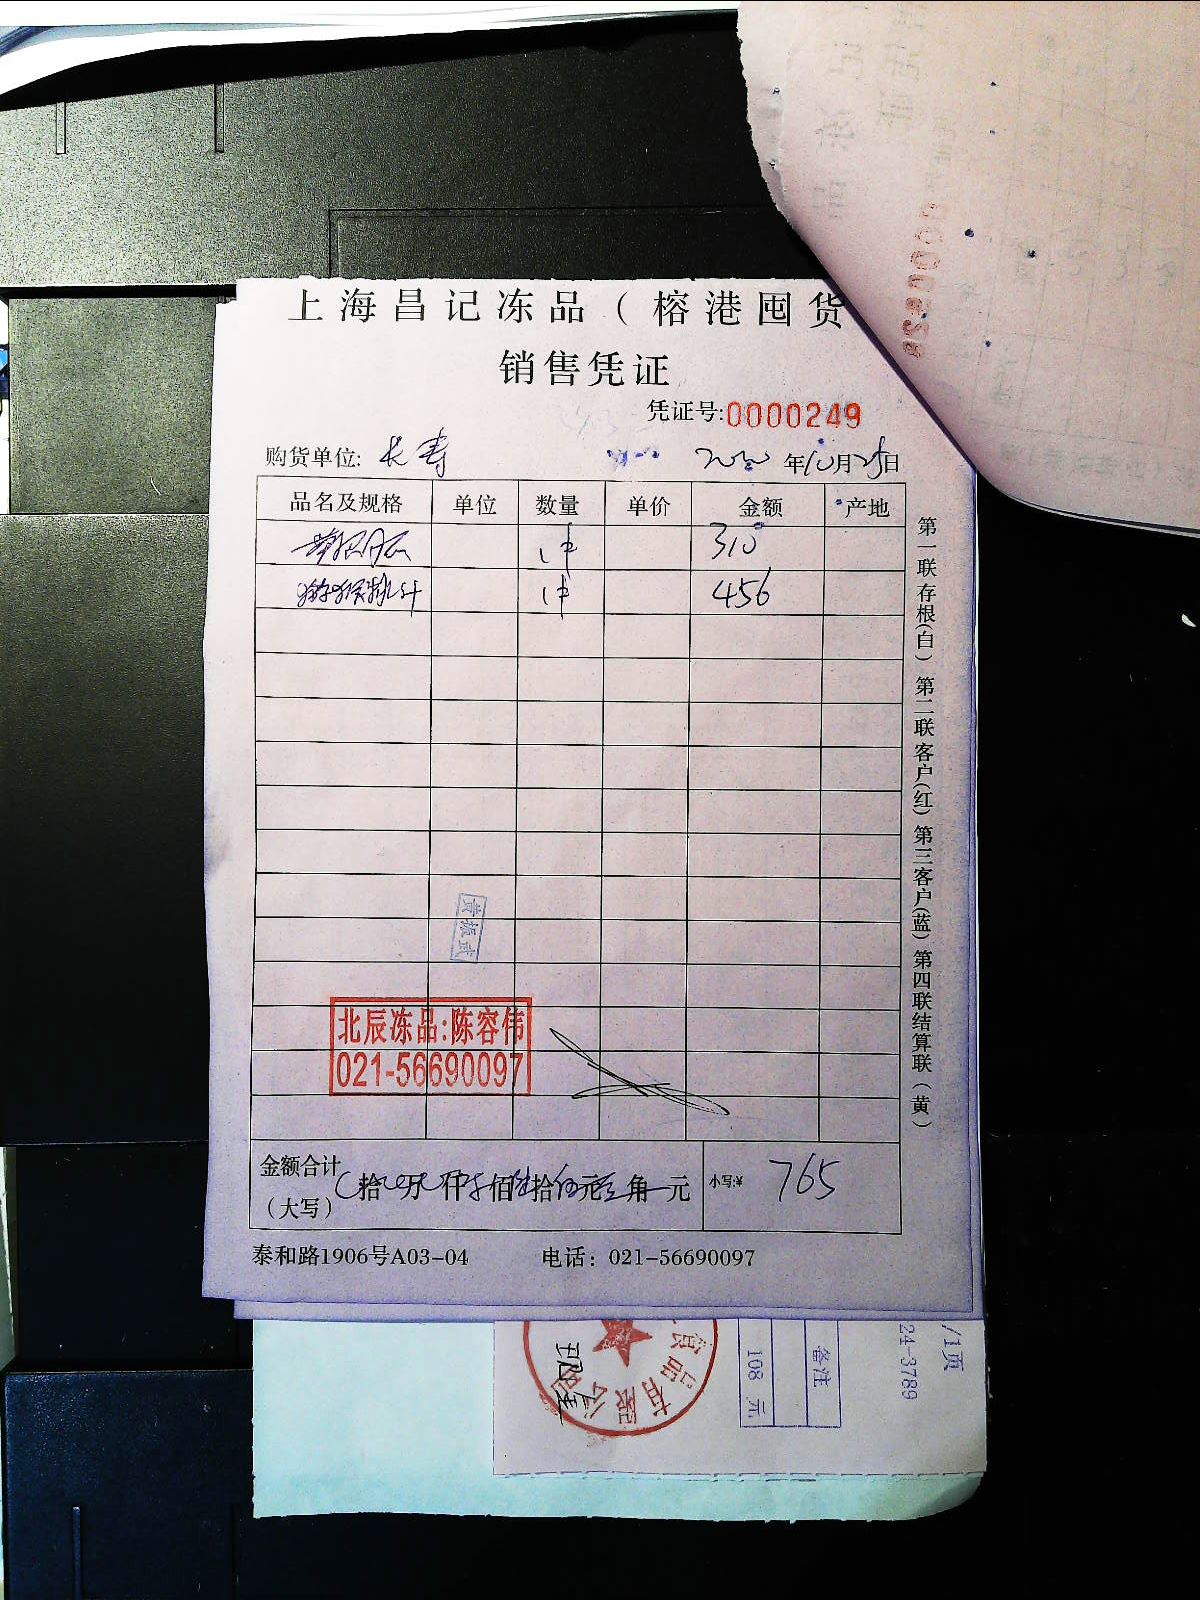 上海昌记冻品（榕港囤货
销售凭证
凭证号:0000249
购货单位: 长寿 2020年10月25日
品名及规格 单位 数量 单价 金额 产地
1件 310
1件 456
第一联存根(白) 第二联客户(红) 第三客户(蓝) 第四联结算联(黄)
黄振武
北辰冻品:陈容伟
021-56690097
金额合计 拾 万 仟 佰 拾 元 角 元 小写:¥ 765
(大写)
泰和路1906号A03-04 电话: 021-56690097
/1页
24-3789
备注
108 元
食品有限公司